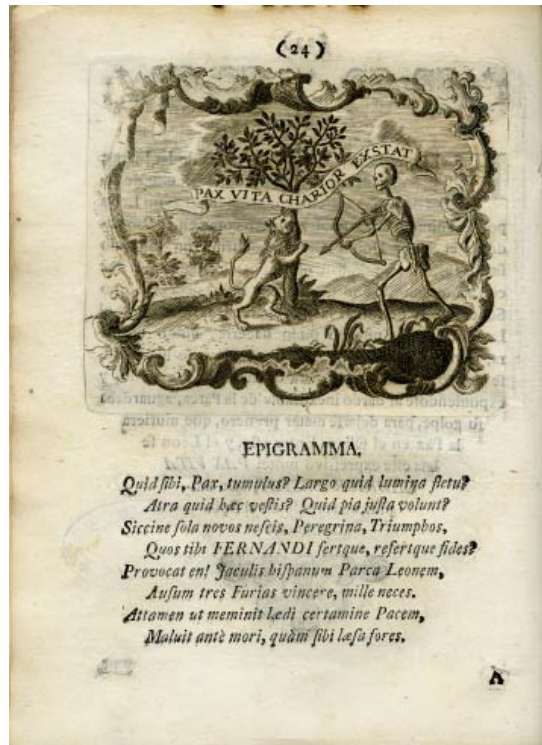 (24)
PAX VITA CHARIOR EXSTAT
EPIGRAMMA.
Quid sibi, Pax, tumulus? Largo quid lumina fletu?
Atra quid hæc vestis? Quid pia justa volunt?
Siccine sola novos nescis, Peregrina, Triumphos,
Quos tibi FERNANDI fertque, refertque fides?
Provocat en! Jaculis hispanum Parca Leonem,
Ausum tres Furias vincere, mille neces.
Attamen ut meminit lædi certamine Pacem,
Maluit antè mori, quàm sibi læsa fores.
A